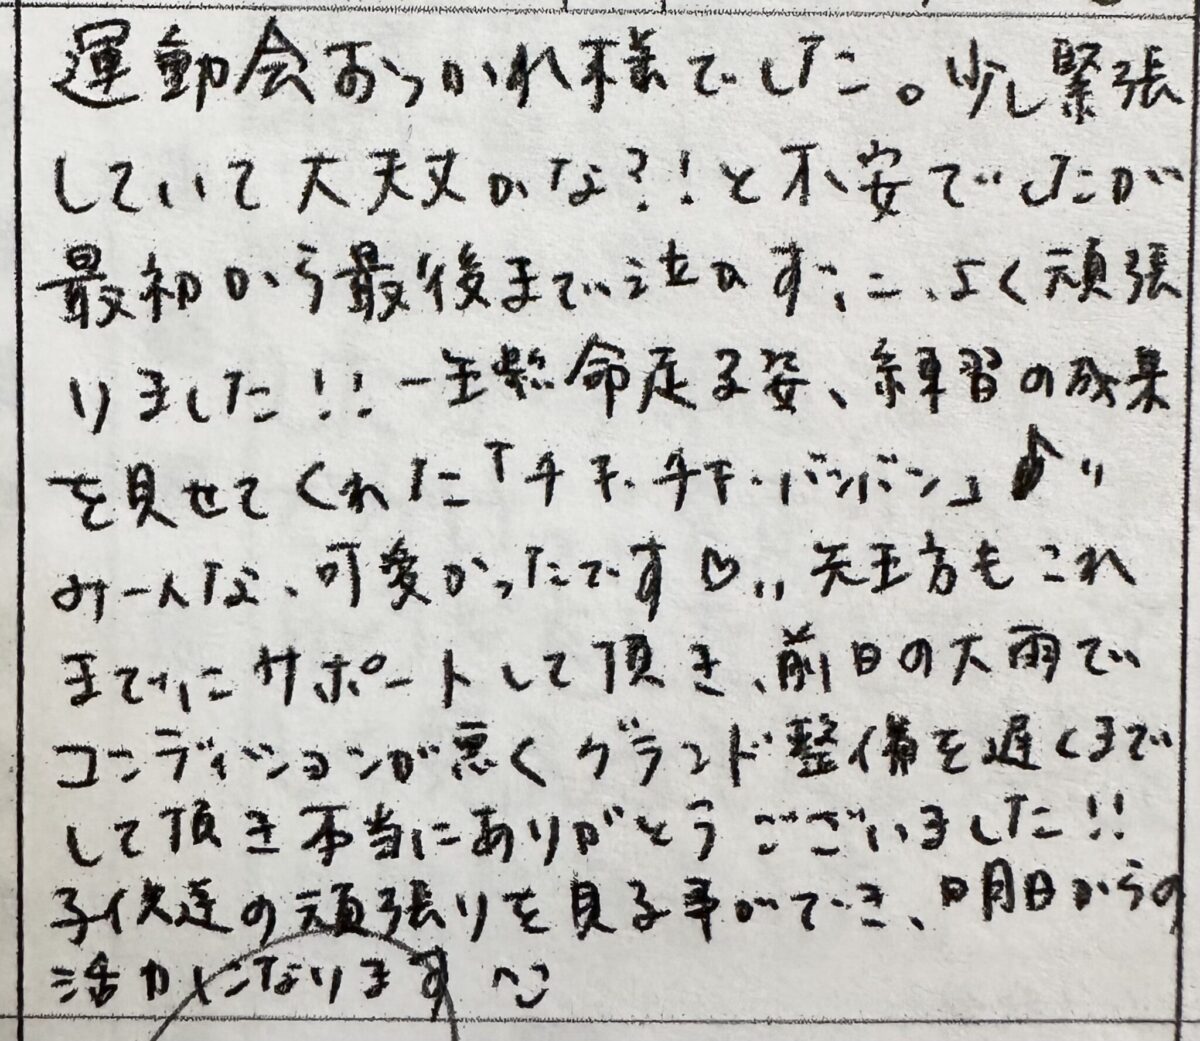 運動会おつかれ様でした。少し緊張
していて大丈夫かな?!と不安でしたが
最初から最後まで泣かずに、よく頑張
りました!!一生懸命走る姿、練習の成果
を見せてくれた「チキ・チキ・バンバン」♪〃
みーんな、可愛かったです♡〃先生方もこれ
までにサポートして頂き、前日の大雨で
コンディションが悪くグランド整備を遅くまで
して頂き本当にありがとうございました!!
子供達の頑張りを見る事ができ、明日からの
活力になります